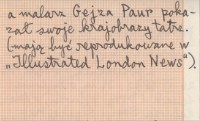 a malarz Gejza Paur poka-
zał swoje krajobrazy tatrz.
(mają być reprodukowane w
„Illustrated London News").